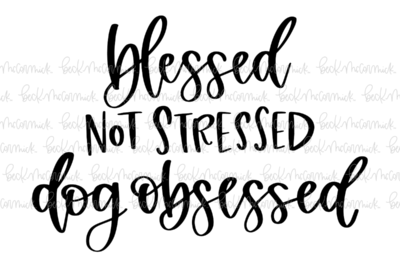 blessed
NOT STRESSED
dog obsessed